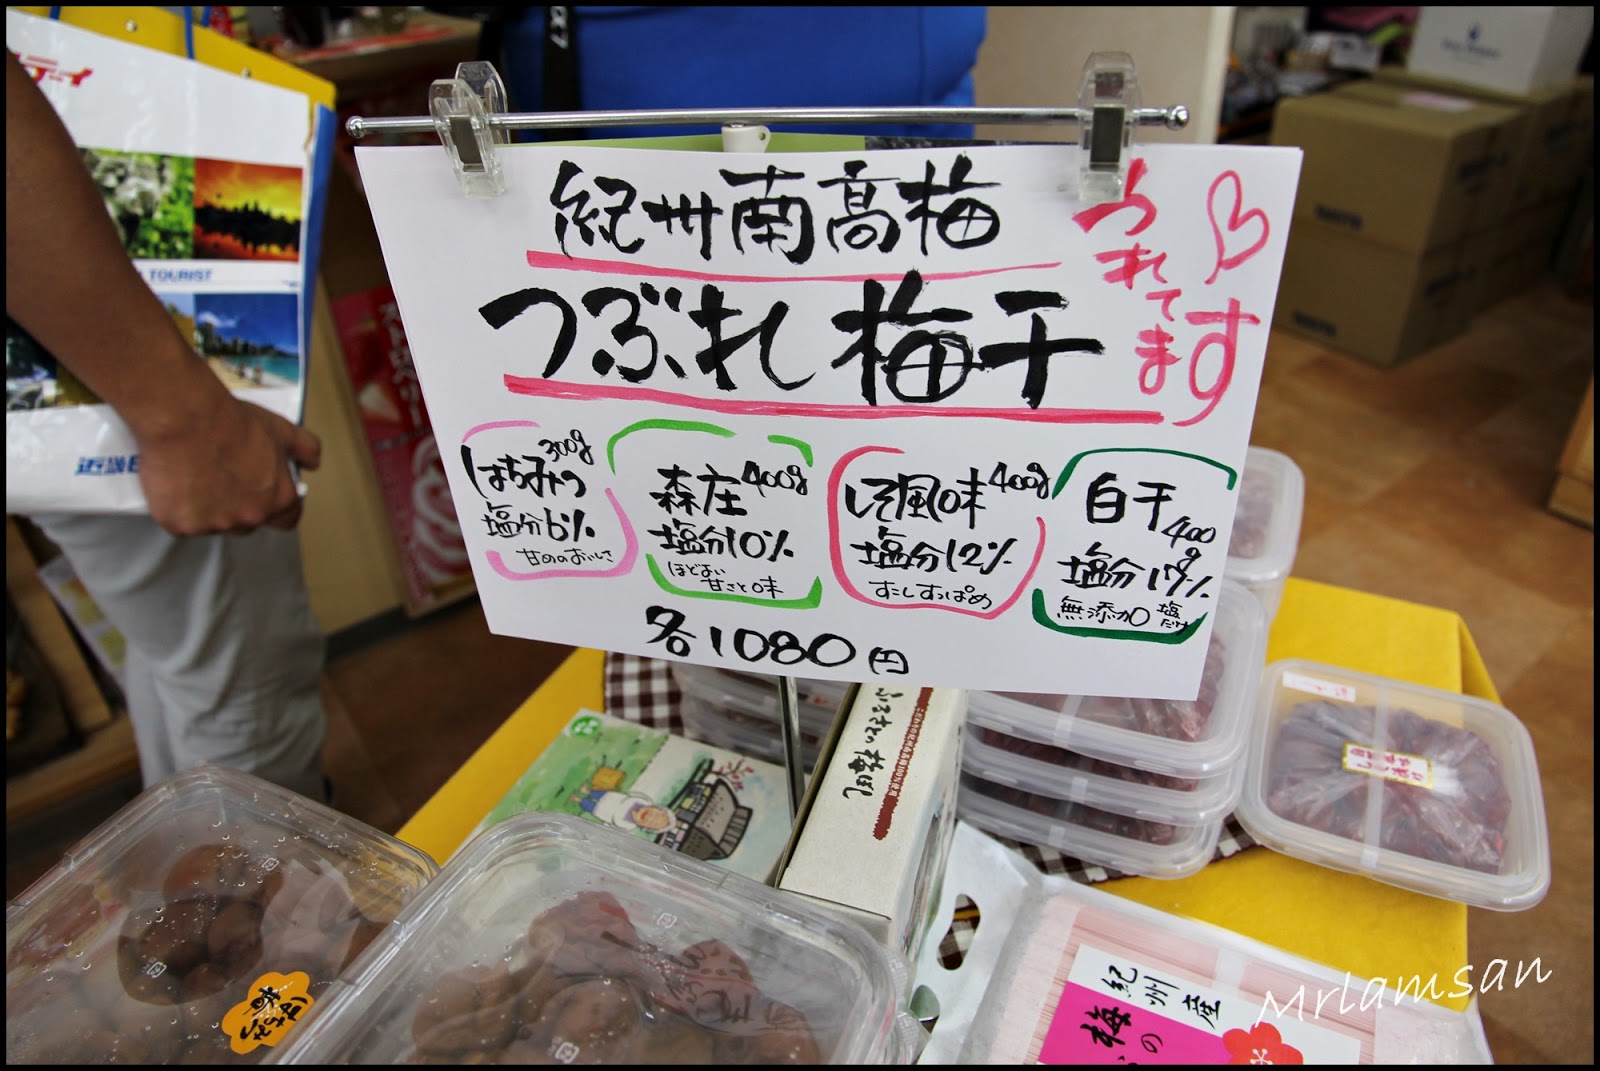 紀州南高梅
つぶれ梅干
うれてます
はちみつ 300g
塩分6%
甘めのおいしさ
森庄 400g
塩分10%
ほどよい
甘さと味
しそ風味 400g
塩分12%
すこしすっぱめ
白干 400g
塩分17%
無添加 塩だけ
各1080円
TOURIST
近畿日
紀州産
梅の
Mrlamsan